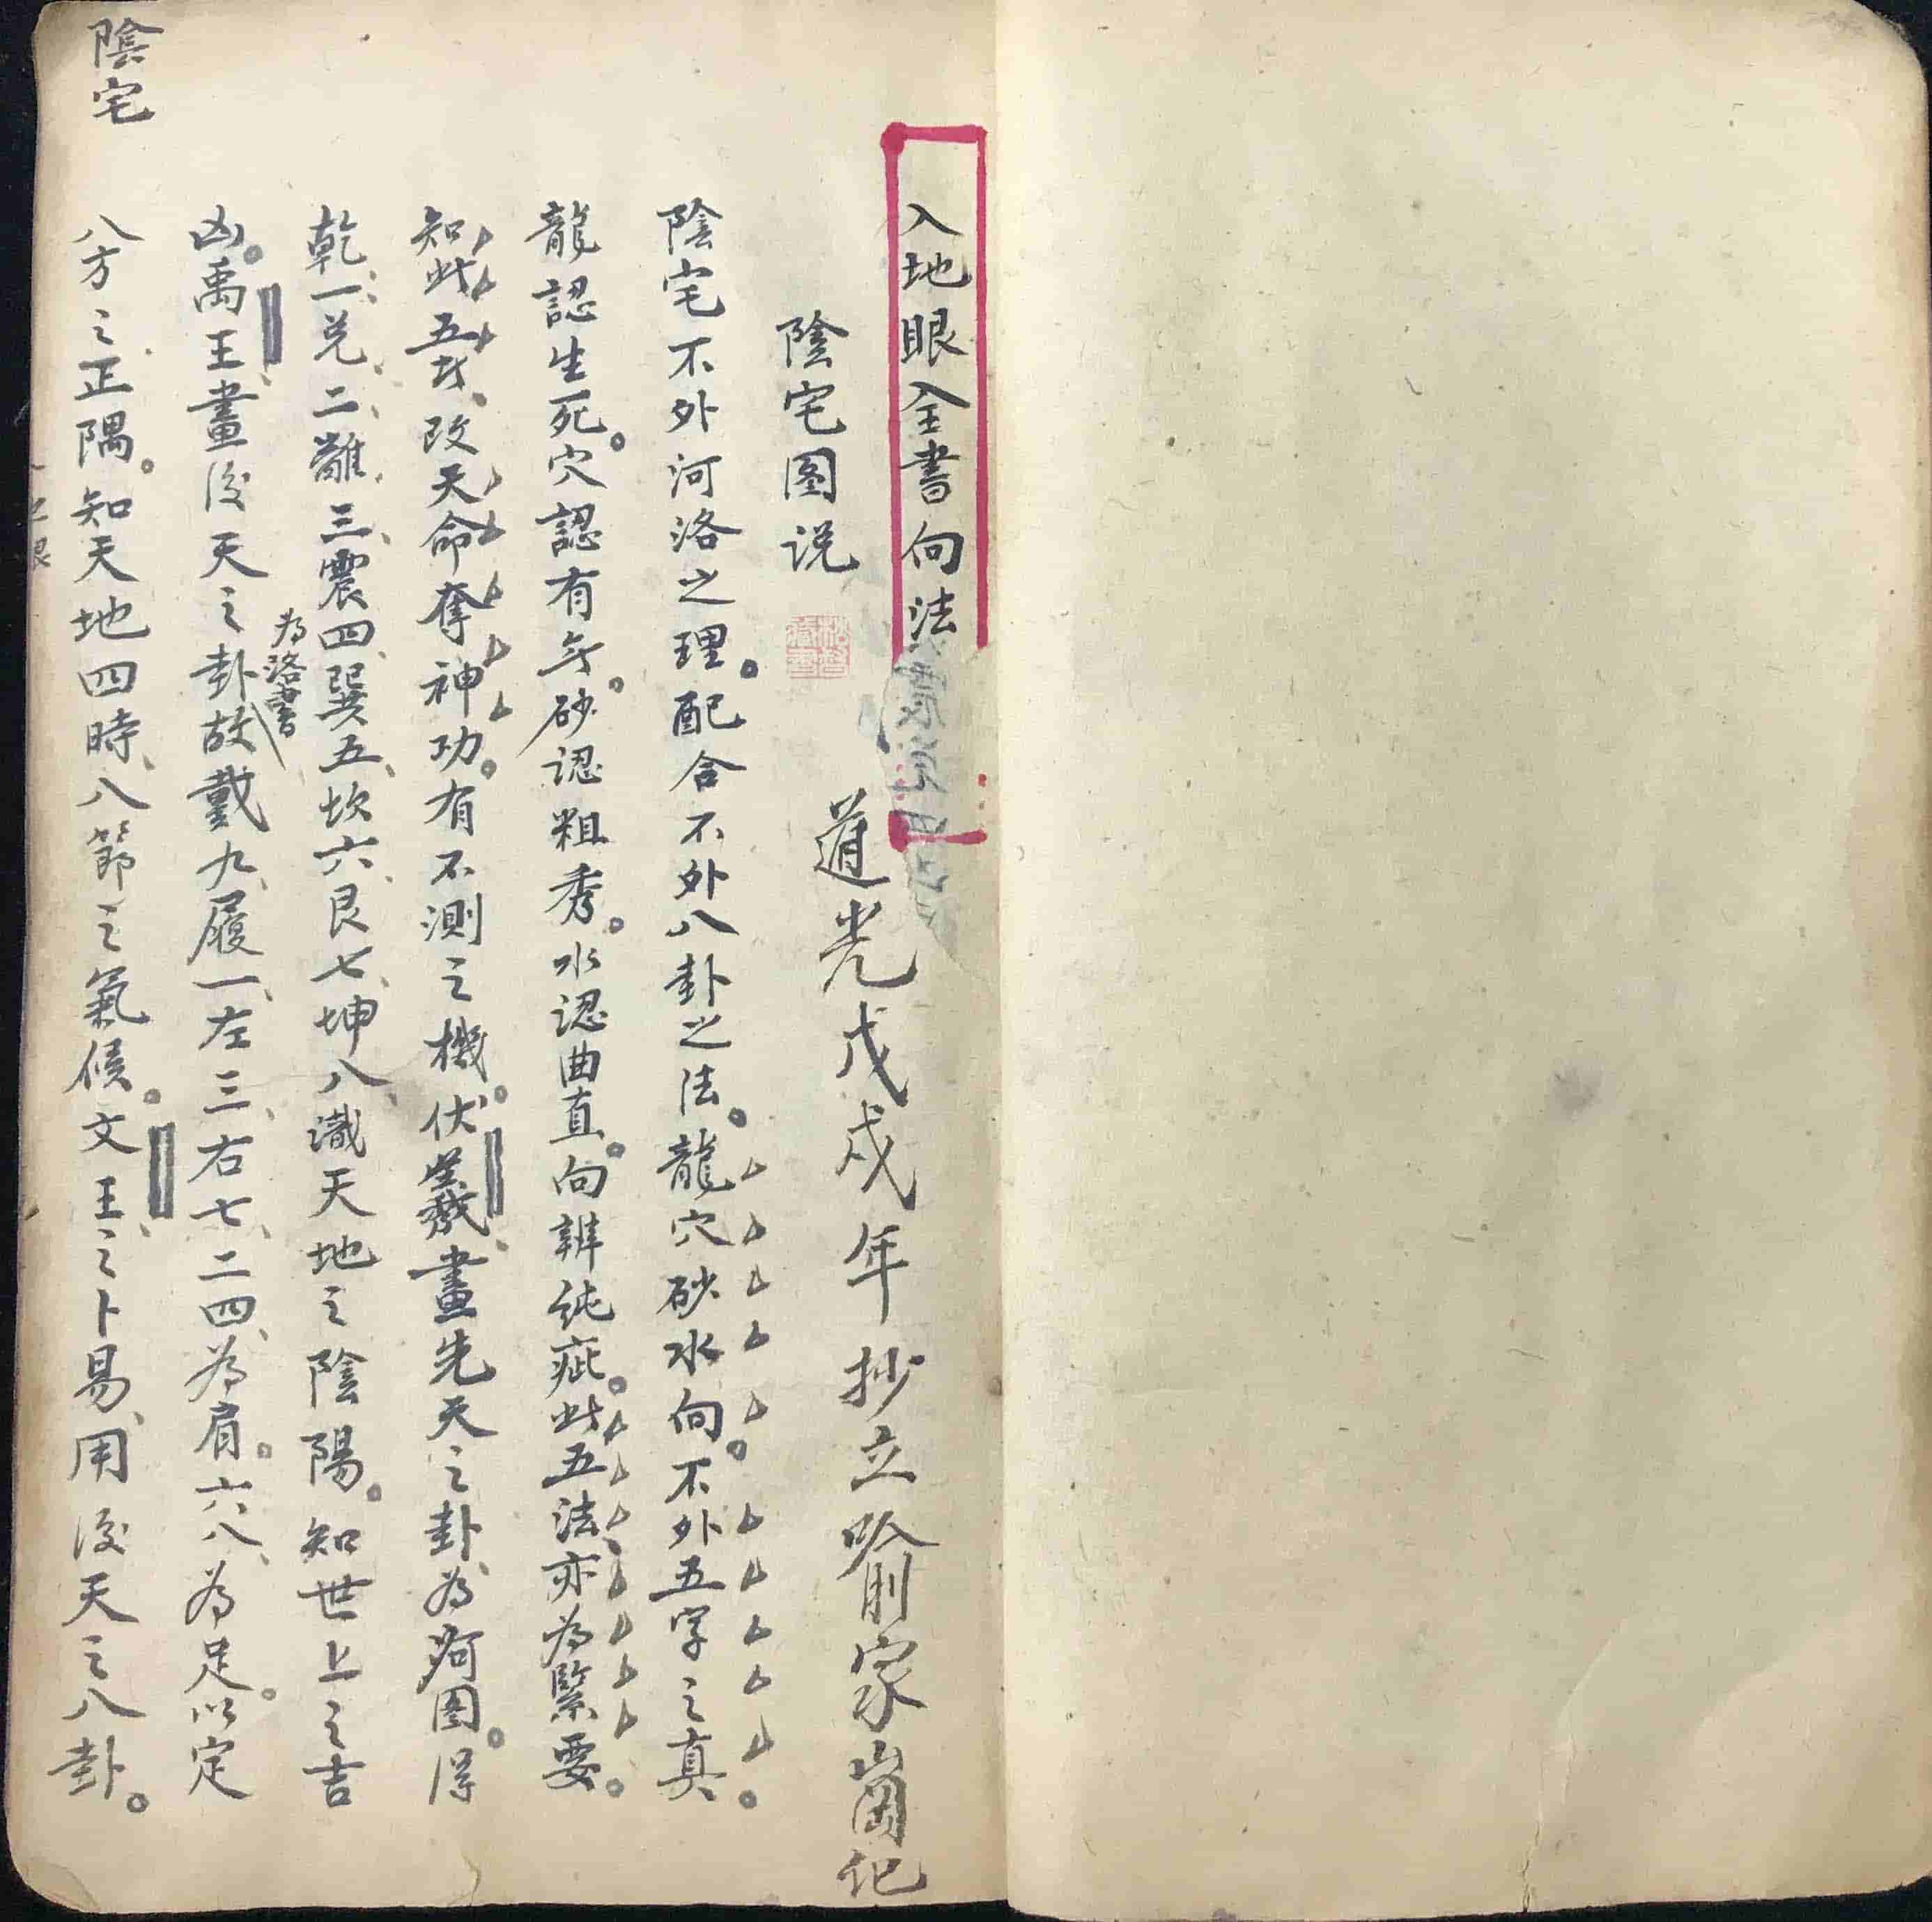 入地眼全書向法
陰宅图说
道光戊戌年抄立喻家崗记
陰宅不外河洛之理。配合不外八卦之法。龍穴砂水向。不外五字之真。
龍認生死。穴認有兮。砂認粗秀。水認曲直。向辨純疵。此五法亦為緊要。
知此五才。改天命奪神功。有不測之機。伏羲畫先天之卦、為河图。得
乾一、兑二、離三、震四、巽五、坎六、艮七、坤八、識天地之陰陽。知世上之吉
為洛書
凶。禹王畫後天之卦故戴九、履一、左三、右七、二四、為肩。六八、為足。以定
八方之正隅。知天地四時、八節之氣候。文王之卜易、用後天之八卦。
陰宅